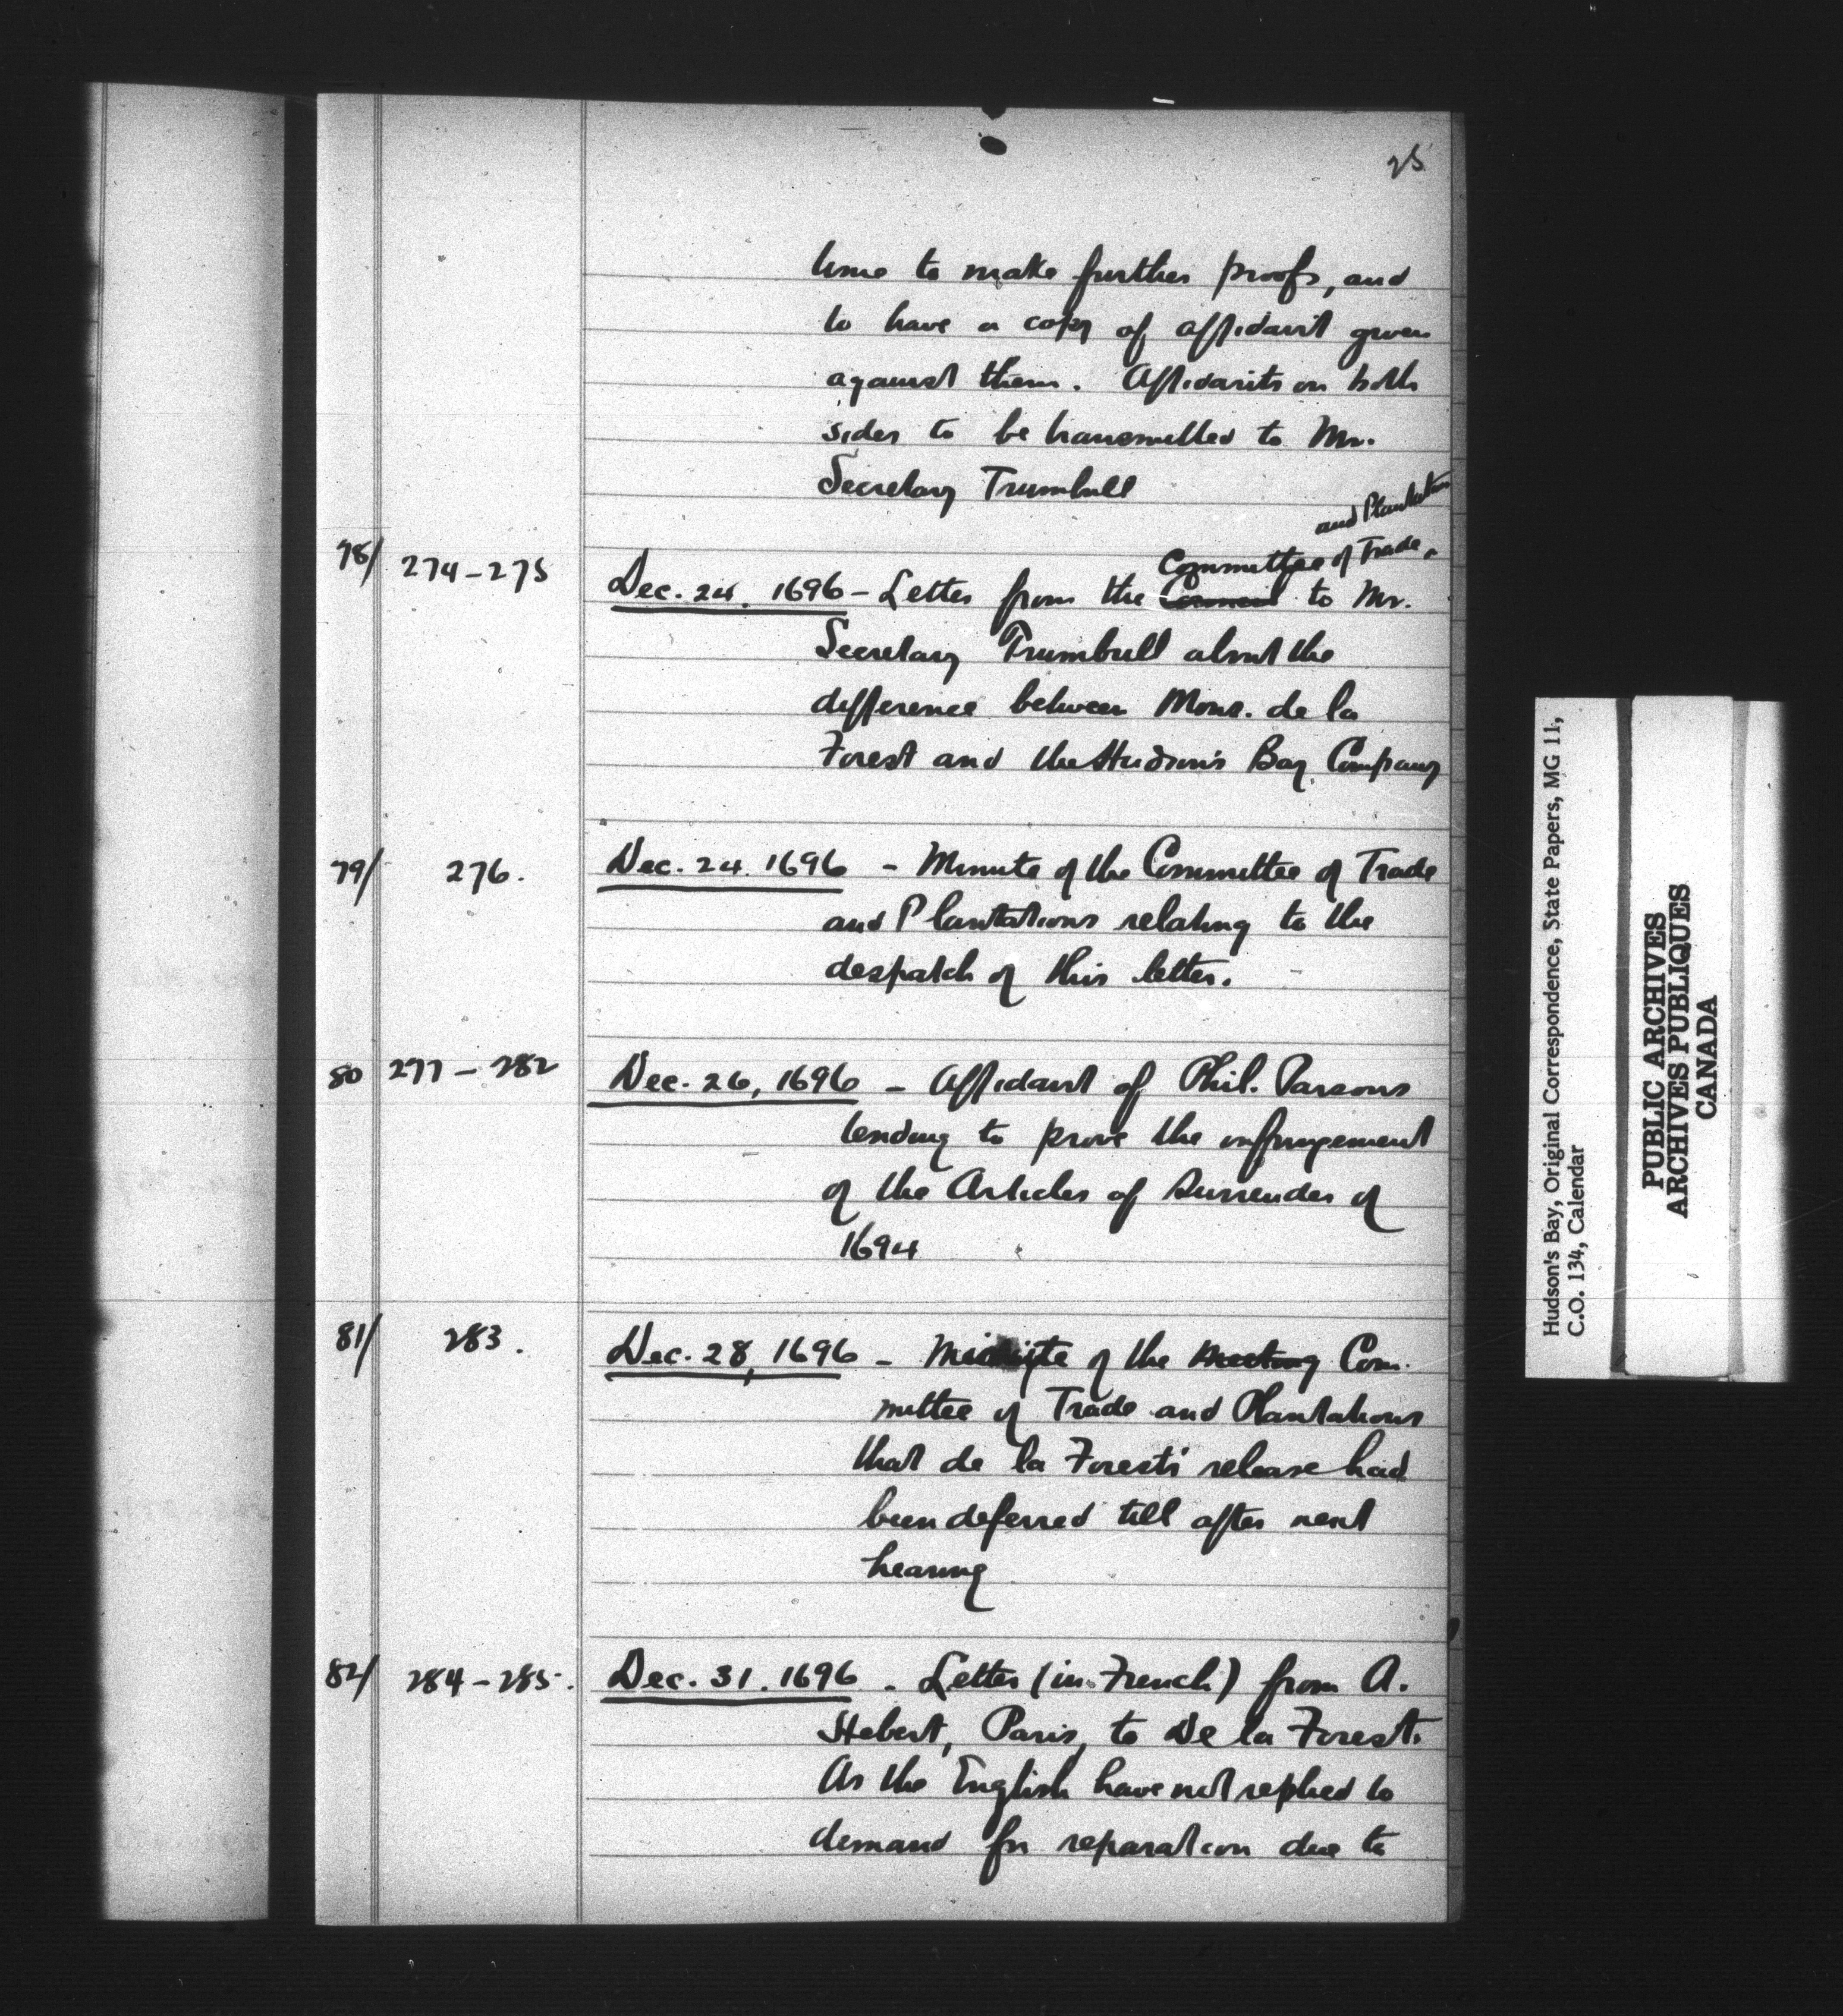 25
time to make further proofs, and
to have a copy of affidavit given
against them. Affidavits on both
sides to be transmitted to Mr.
Secretary Trumbull
and Plantations
Committee of Trade
78/ 274-275 Dec. 24. 1696 - Letter from the Council to Mr.
Secretary Trumbull about the
difference between Mons. de la
Forest and the Hudson's Bay Company
79/ 276. Dec. 24. 1696 - Minute of the Committee of Trade
and Plantations relating to the
despatch of this letter.
80 277-282 Dec. 26, 1696 - Affidavit of Phil. Parsons
tending to prove the infringement
of the Articles of Surrender of
1694
81/ 283. Dec. 28, 1696 - Minute of the meeting Com-
mittee of Trade and Plantations
that de la Forest's release had
been deferred till after next
hearing
82/ 284-285. Dec. 31. 1696 - Letter (in French) from A.
Hebert, Paris, to De la Forest.
As the English have not replied to
demand for reparation due to
Hudson's Bay, Original Correspondence, State Papers, MG 11,
C.O. 134, Calendar
PUBLIC ARCHIVES
ARCHIVES PUBLIQUES
CANADA